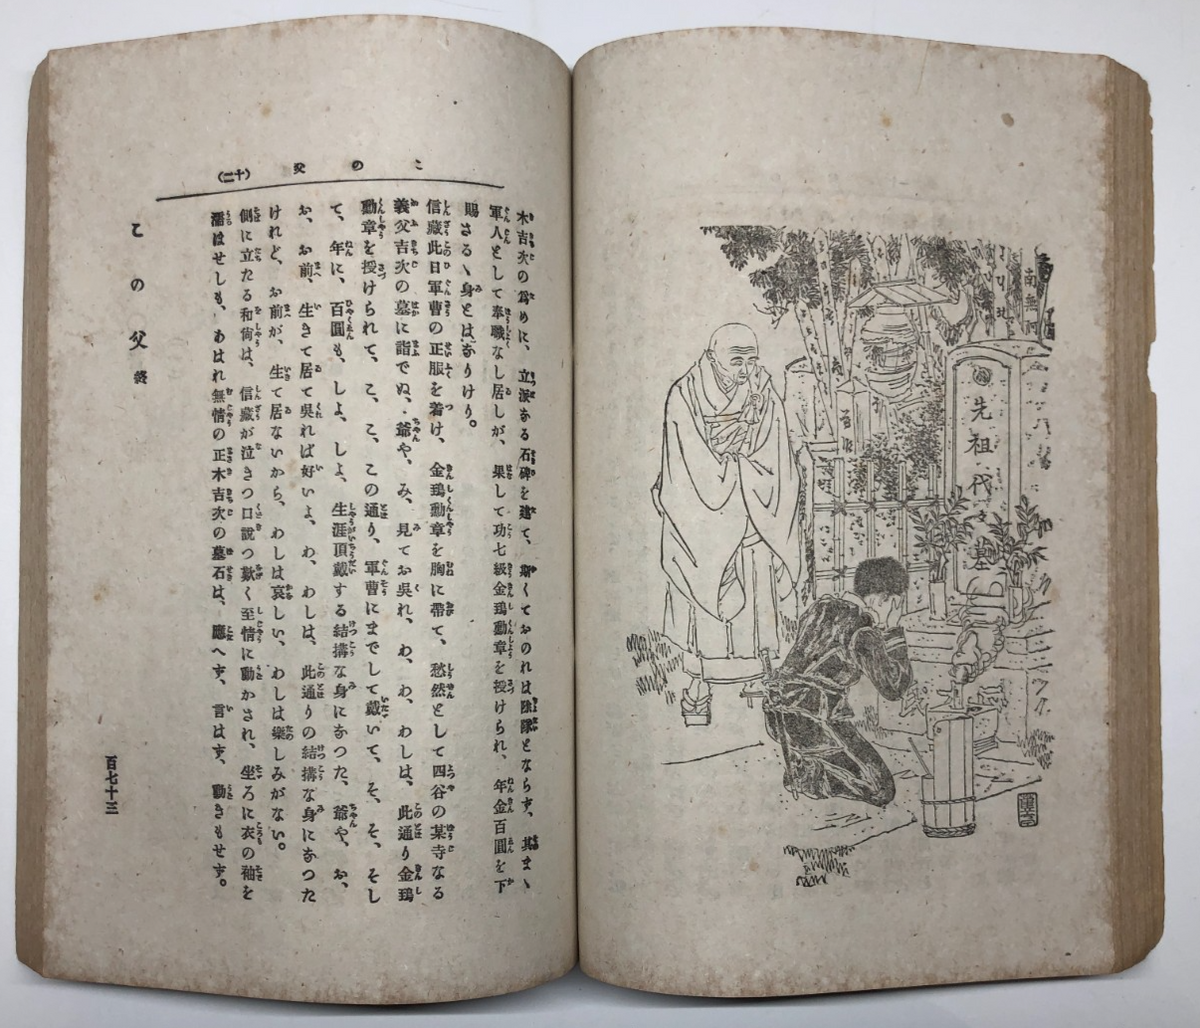 南無阿
先祖代々墓
この父 (十二)
木吉次の爲めに、立派なる石碑を建て、斯くておのれは除隊とならず、其まゝ
軍人として奉職なし居しが、果して功七級金鵄勳章を授けられ、年金百圓を下
賜さるゝ身とはなりけり。
信藏此日軍曹の正服を着け、金鵄勳章を胸に帶て、愁然として四谷の某寺なる
義父吉次の墓に詣でぬ、爺や、み、見てお呉れ、わ、わ、わしは、此通り金鵄
勳章を授けられて、こ、こ、この通り、軍曹にまでして戴いて、そ、そ、そし
て、年に、百圓も、しよ、しよ、生涯頂戴する結搆な身になつた、爺や、お、
お、お前、生きて居て呉れば好いよ、わ、わしは、此通りの結搆な身になつた
けれど、お前が、生て居ないから、わしは哀しい、わしは樂しみがない。
側に立たる和尚は、信藏が泣きつ口說つ歎く至情に動かされ、坐ろに衣の袖を
濡はせしも、あはれ無情の正木吉次の墓石は、應へず、言はず、動きもせず。
この父 終
百七十三